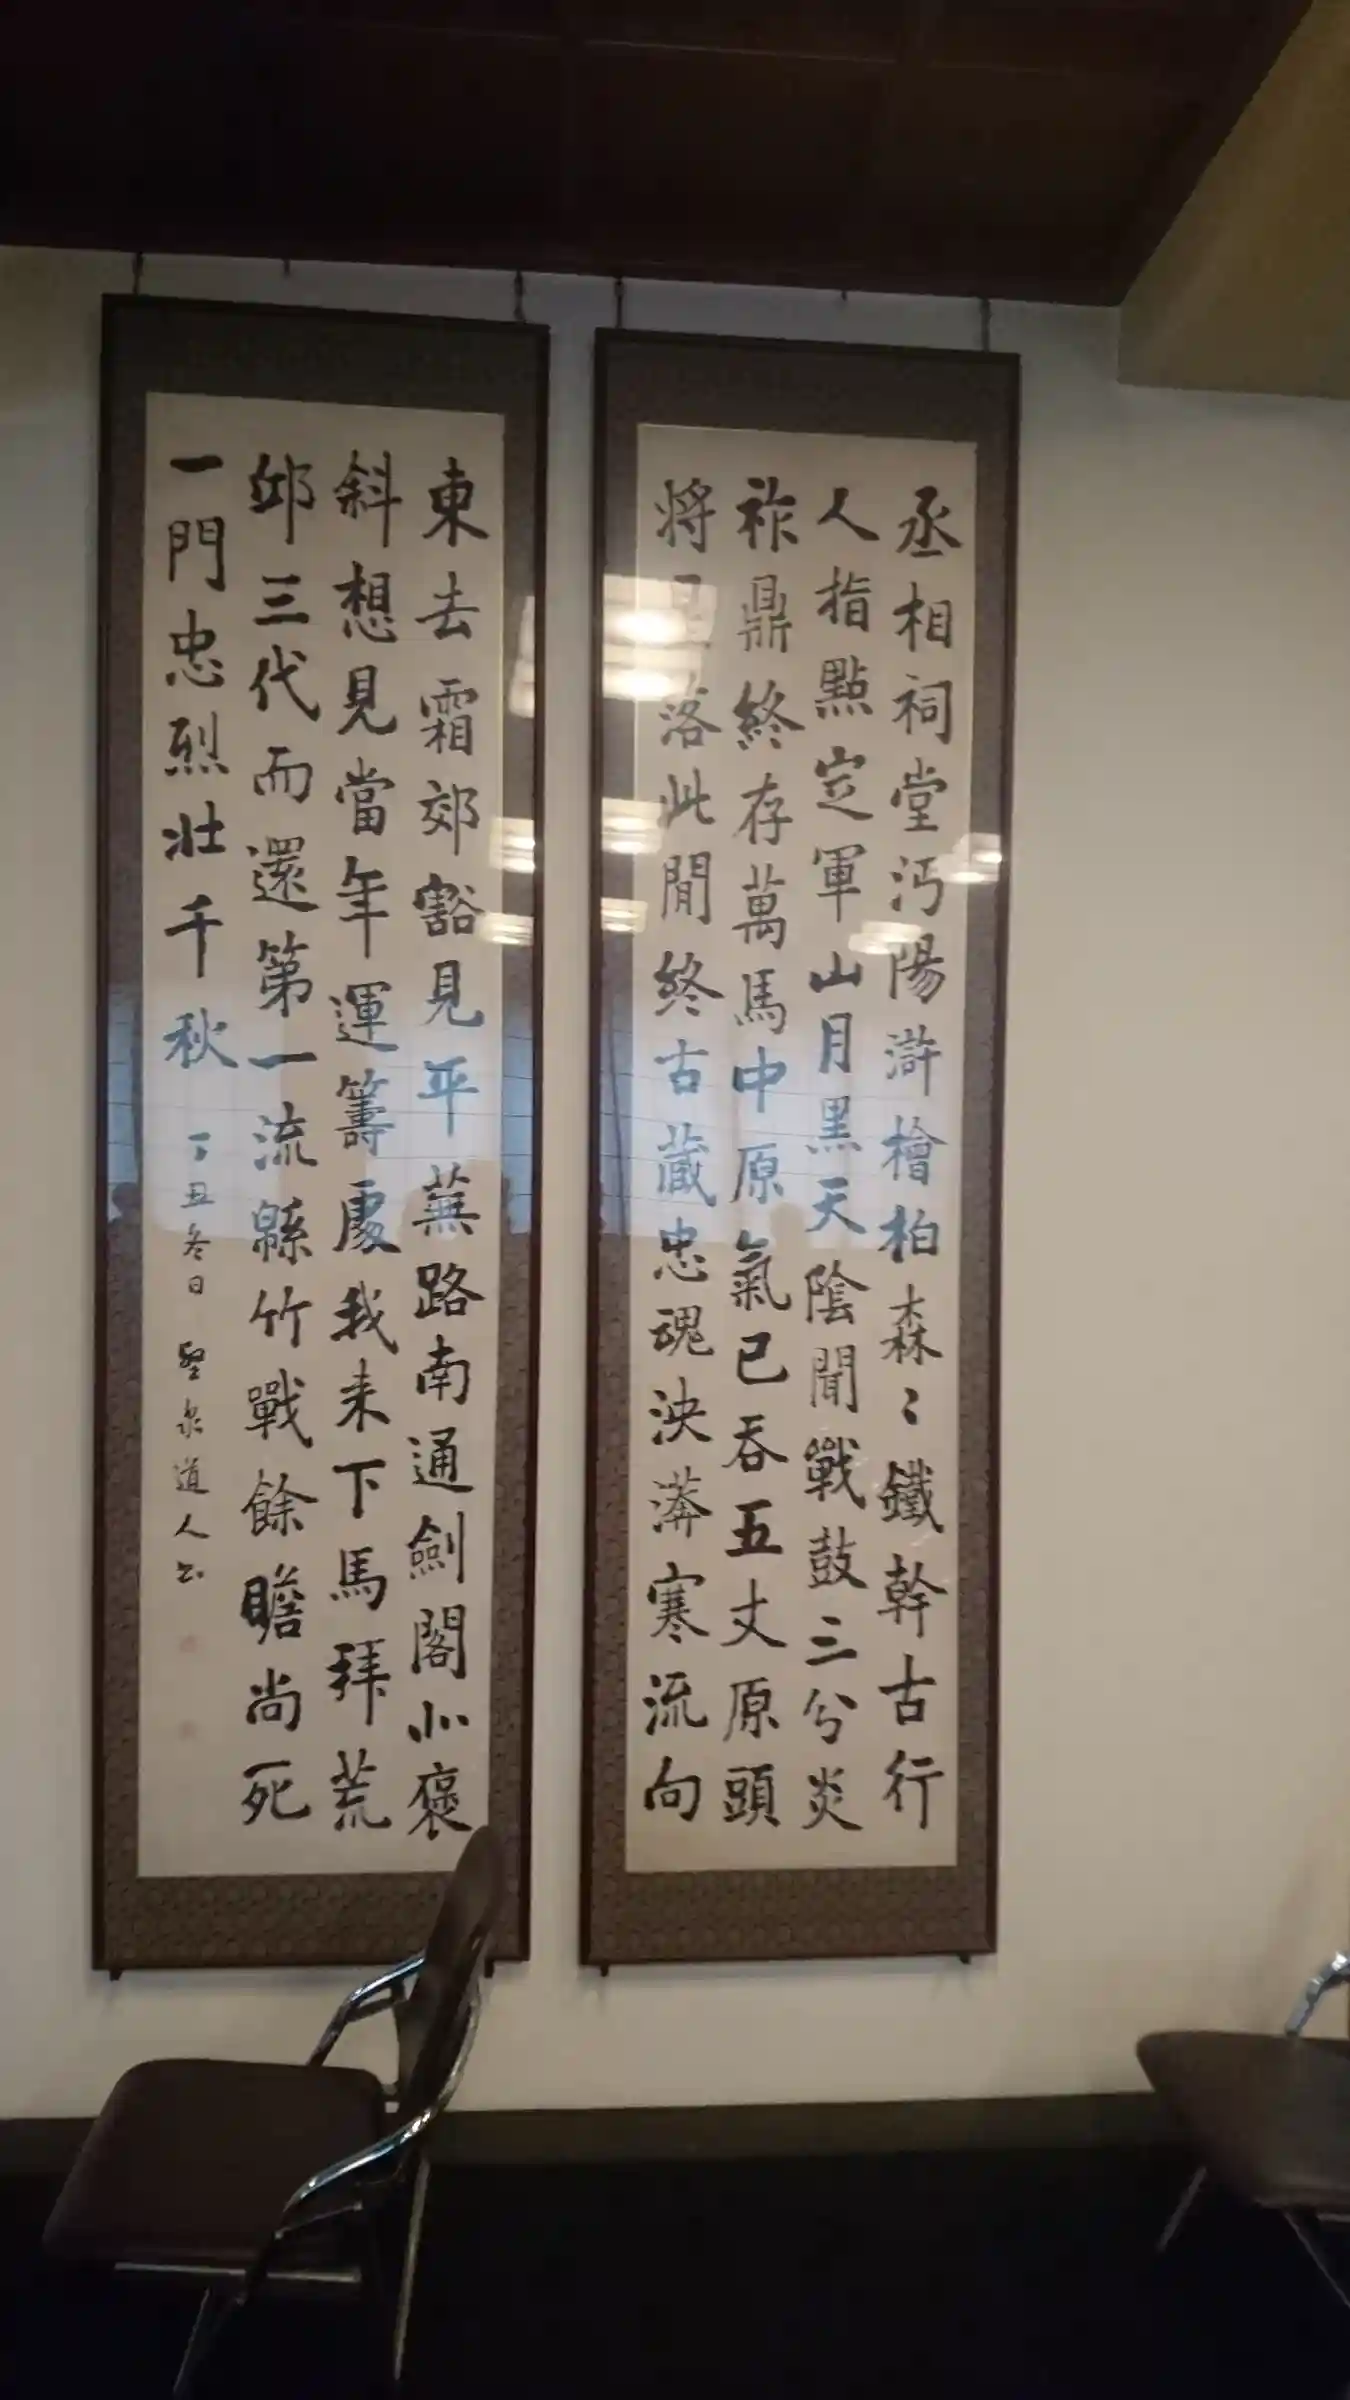 丞相祠堂沔陽滸檜柏森〻鐵幹古行
人指點定軍山月黑天陰聞戰鼓三兮炎
祚鼎終存萬馬中原氣已吞五丈原頭
將落此間終古藏忠魂泱漭寒流向
東去霜郊豁見平蕪路南通劍閣北褒
斜想見當年運籌處我来下馬拜荒
邱三代而還第一流緜竹戰餘瞻尚死
一門忠烈壯千秋
丁丑冬日 聖泉道人书